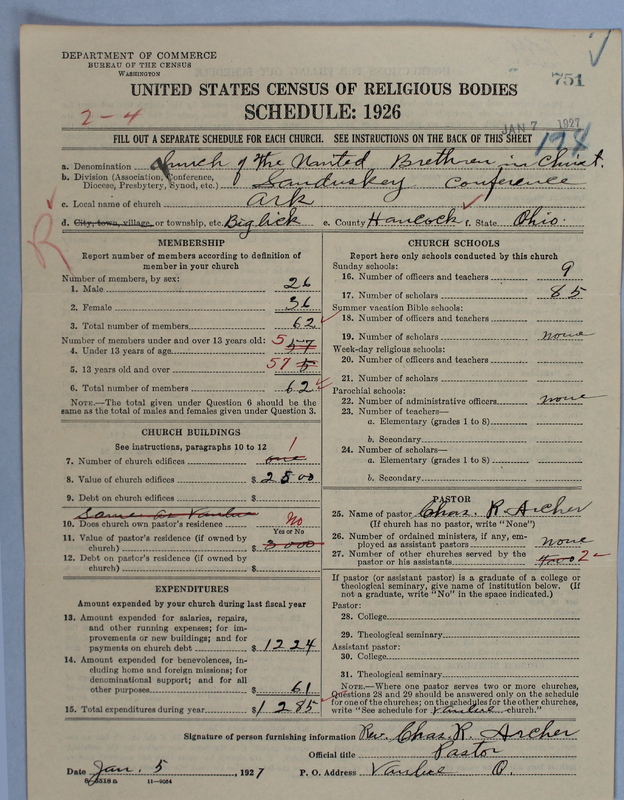 DEPARTMENT OF COMMERCE
BUREAU OF THE CENSUS
WASHINGTON
751
UNITED STATES CENSUS OF RELIGIOUS BODIES
2-4
SCHEDULE: 1926
JAN 7 1927
FILL OUT A SEPARATE SCHEDULE FOR EACH CHURCH. SEE INSTRUCTIONS ON THE BACK OF THIS SHEET
a. Denomination Church of the United Brethren in Christ.
b. Division (Association, Conference, Diocese, Presbytery, Synod, etc.) Sanduskey Conference
c. Local name of church Ark
d. City, town, village, or township, etc. Biglick e. County Hancock f. State Ohio.
R
MEMBERSHIP
Report number of members according to definition of
member in your church
Number of members, by sex:
1. Male 26
2. Female 36
3. Total number of members 62
Number of members under and over 13 years old:
4. Under 13 years of age 5 57
5. 13 years old and over 57 5
6. Total number of members 62
NOTE.—The total given under Question 6 should be the
same as the total of males and females given under Question 3.
CHURCH BUILDINGS
See instructions, paragraphs 10 to 12
7. Number of church edifices one 1
8. Value of church edifices $ 2500
9. Debt on church edifices $
Same as Vanlue
10. Does church own pastor's residence No
Yes or No
11. Value of pastor's residence (if owned by
church) $ 3000
12. Debt on pastor's residence (if owned by
church) $
EXPENDITURES
Amount expended by your church during last fiscal year
13. Amount expended for salaries, repairs,
and other running expenses; for im-
provements or new buildings; and for
payments on church debt $ 1224
14. Amount expended for benevolences, in-
cluding home and foreign missions; for
denominational support; and for all
other purposes $ 61
15. Total expenditures during year $ 1285
CHURCH SCHOOLS
Report here only schools conducted by this church
Sunday schools:
16. Number of officers and teachers 9
17. Number of scholars 85
Summer vacation Bible schools:
18. Number of officers and teachers
19. Number of scholars none
Week-day religious schools:
20. Number of officers and teachers
21. Number of scholars
Parochial schools:
22. Number of administrative officers none
23. Number of teachers—
a. Elementary (grades 1 to 8)
b. Secondary
24. Number of scholars—
a. Elementary (grades 1 to 8)
b. Secondary
PASTOR
25. Name of pastor Chas. R Archer
(If church has no pastor, write "None")
26. Number of ordained ministers, if any, em-
ployed as assistant pastors none
27. Number of other churches served by the
pastor or his assistants 2
If pastor (or assistant pastor) is a graduate of a college or
theological seminary, give name of institution below. (If
not a graduate, write "No" in the space indicated.)
Pastor:
28. College
29. Theological seminary
Assistant pastor:
30. College
31. Theological seminary
NOTE.—Where one pastor serves two or more churches,
Questions 28 and 29 should be answered only on the schedule
for one of the churches; on the schedules for the other churches,
write "See schedule for Vanlue church."
Signature of person furnishing information Rev. Chas. R. Archer
Official title Pastor
Date Jan. 5, 1927 P. O. Address Vanlue O.
11-9084